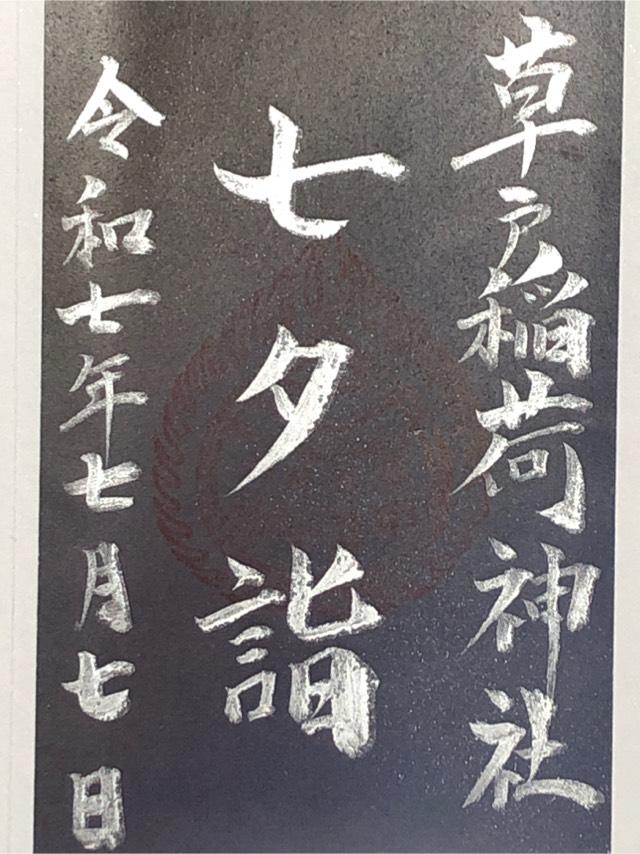 草戸稲荷神社
七夕詣
令和七年七月七日